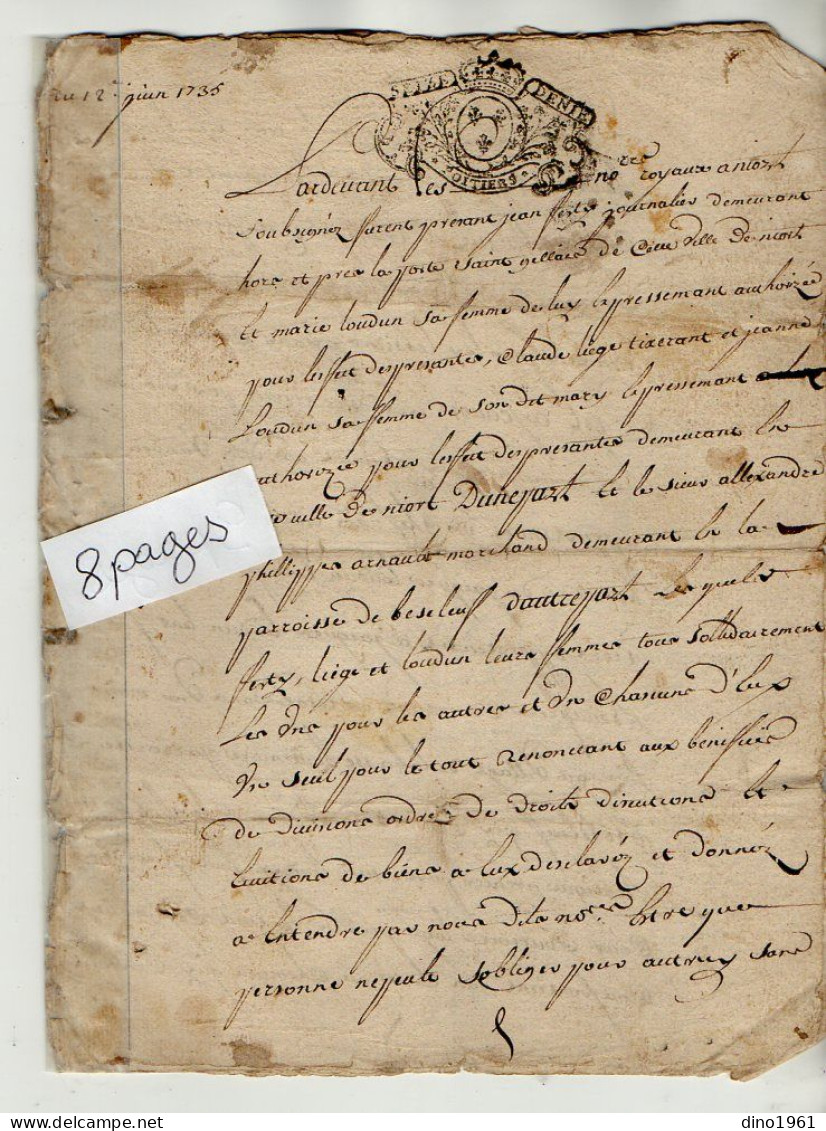 du 12e juin 1735
SEIZE DENIE
POITIERS
Pardevant les nores royaux a niort
soubsignéz furent presant jean ferty journalier demeurant
hors et pres la porte saint gellais de cette ville de niort
Et marie loudun sa femme de luy Expressemant authorizée
pour leffet des presantes, Claude liège tixerant et jeanne
loudun sa femme de son dit mary Expressemant
authorizée pour leffet des presantes demeurant En
ville de niort Dunepart Et le sieur allexandre
phillippe arnault marchand demeurant En la
parroisse de beseleuf dautrepart lesquels
ferty, liège et loudun leurs femmes tous sollidairement
Les Uns pour les autres et Un Chascuns d'Eux
Un seul pour le tout renonciant aux beniffices
de divisions ordre de droits Et
Evitions de biens a Eux desclaréz et donnéz
a Entendre par nous dits nores Estre que
personne ne peult sobliger pour autruy sans
8 pages
dino1961